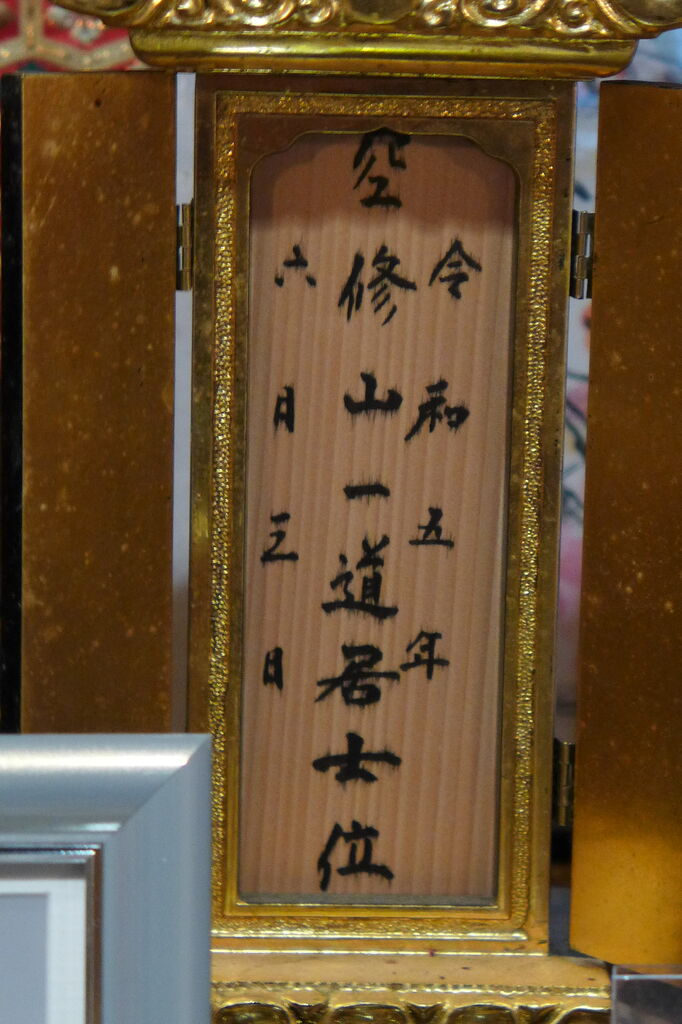 令和五年
空修山一道居士位
六月三日